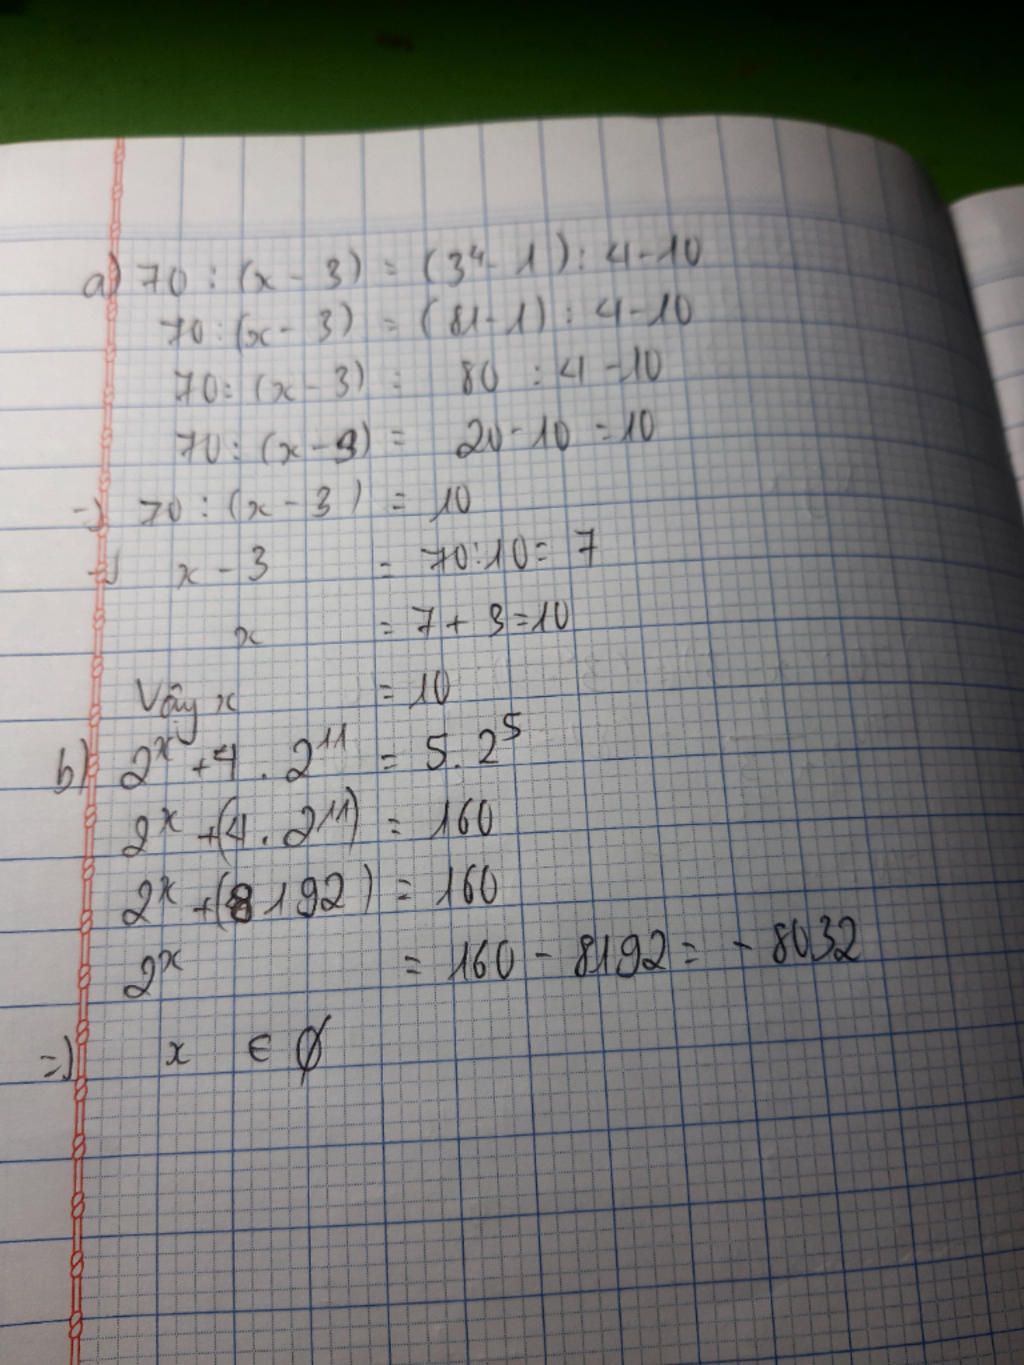 a) 70 : (x - 3) = (3⁴ - 1) : 4 - 10
70 : (x - 3) = (81 - 1) : 4 - 10
70 : (x - 3) = 80 : 4 - 10
70 : (x - 3) = 20 - 10 = 10
=) 70 : (x - 3) = 10
=) x - 3 = 70 : 10 = 7
x = 7 + 3 = 10
Vậy x = 10
b) 2ˣ + 4 . 2¹¹ = 5 . 2⁵
2ˣ + (4 . 2¹¹) = 160
2ˣ + (8192) = 160
2ˣ = 160 - 8192 = - 8032
=) x ∈ ∅